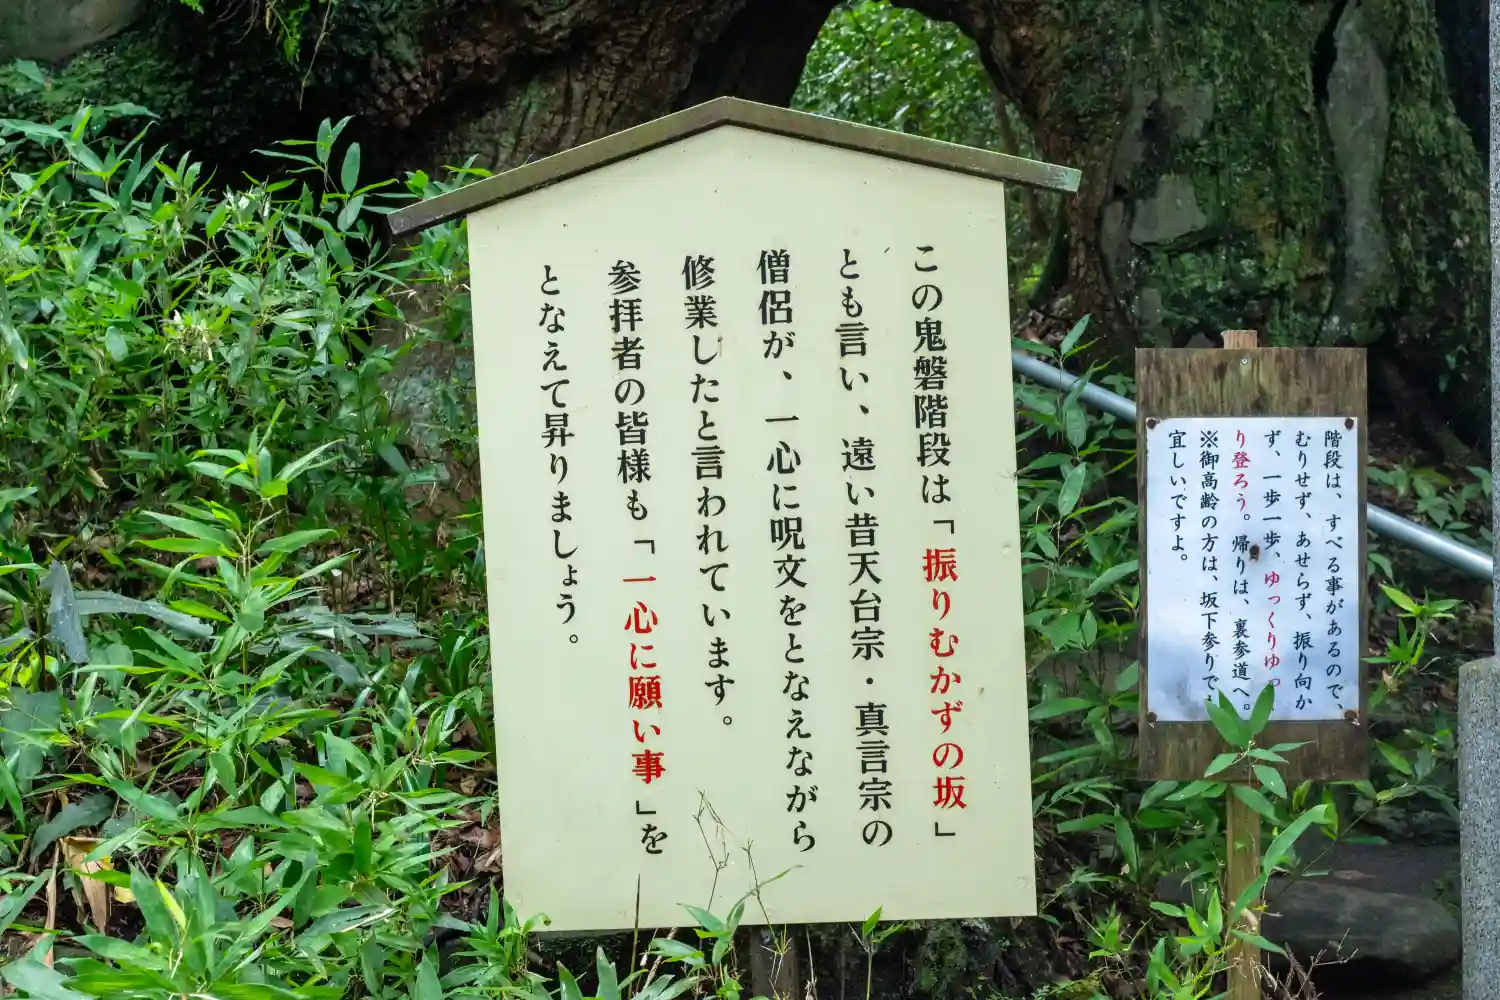 この鬼磐階段は「振りむかずの坂」
とも言い、遠い昔天台宗・真言宗の
僧侶が、一心に呪文をとなえながら
修業したと言われています。
参拝者の皆様も「一心に願い事」を
となえて昇りましょう。
階段は、すべる事があるので、
むりせず、あせらず、振り向か
ず、一歩一歩、ゆっくりゆっ
り登ろう。帰りは、裏参道へ。
※御高齢の方は、坂下参りで
宜しいですよ。